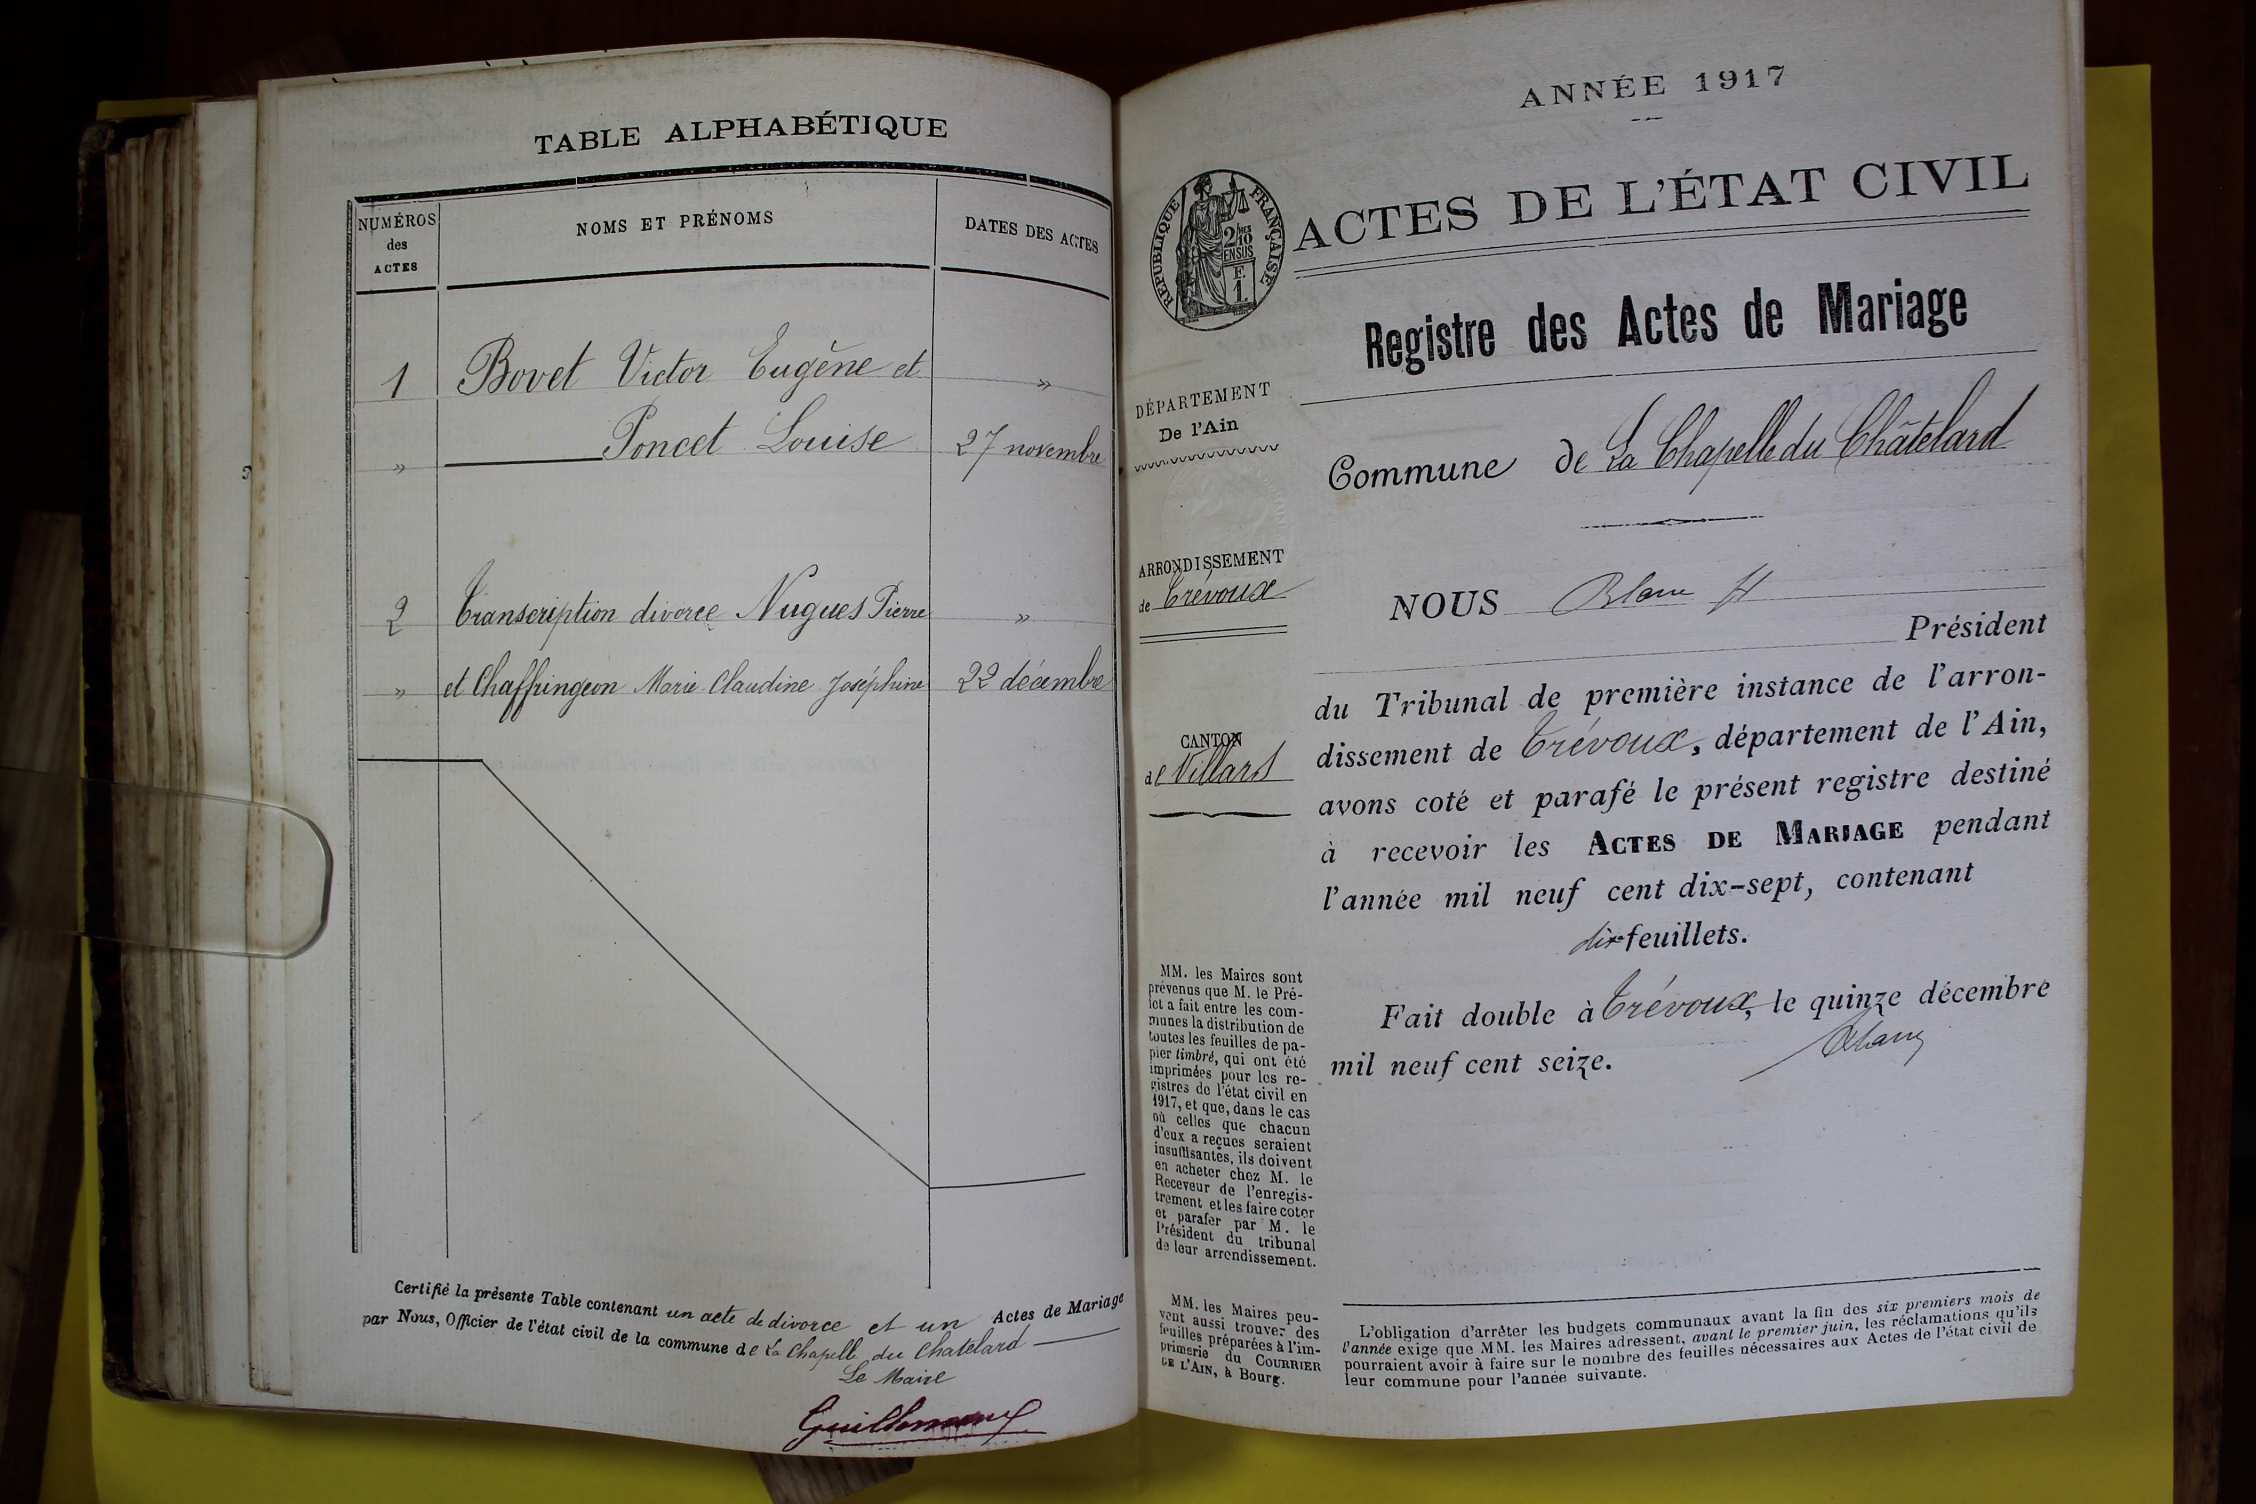 TABLE ALPHABÉTIQUE
NUMÉROS
des
ACTES
NOMS ET PRÉNOMS
DATES DES ACTES
1 Bovet Victor Eugène et »
» Poncet Louise 27 novembre
2 Transcription divorce Nugues Pierre »
» et Chaffringeon Marie Claudine Joséphine 22 décembre
Certifié la présente Table contenant un acte de divorce et un Actes de Mariage
par Nous, Officier de l'état civil de la commune de La Chapelle du Chatelard
Le Maire
ANNÉE 1917
RÉPUBLIQUE FRANÇAISE
2/10
EN SUS
F.
1.
ACTES DE L'ÉTAT CIVIL
Registre des Actes de Mariage
DÉPARTEMENT
De l'Ain
Commune de La Chapelle du Châtelard
ARRONDISSEMENT
de Trévoux
NOUS Blanc
Président
CANTON
de Villars
du Tribunal de première instance de l'arron-
dissement de Trévoux, département de l'Ain,
avons coté et parafé le présent registre destiné
à recevoir les ACTES DE MARIAGE pendant
l'année mil neuf cent dix-sept, contenant
dix feuillets.
Fait double à Trévoux, le quinze décembre
mil neuf cent seize.
MM. les Maires sont
prévenus que M. le Pré-
fet a fait entre les com-
munes la distribution de
toutes les feuilles de pa-
pier timbré, qui ont été
imprimées pour les re-
gistres de l'état civil en
1917, et que, dans le cas
où celles que chacun
d'eux a reçues seraient
insuffisantes, ils doivent
en acheter chez M. le
Receveur de l'enregis-
trement et les faire coter
et parafer par M. le
Président du tribunal
de leur arrondissement.
MM. les Maires peu-
vent aussi trouver des
feuilles préparées à l'im-
primerie du COURRIER
DE L'AIN, à Bourg.
L'obligation d'arrêter les budgets communaux avant la fin des six premiers mois de
l'année exige que MM. les Maires adressent, avant le premier juin, les réclamations qu'ils
pourraient avoir à faire sur le nombre des feuilles nécessaires aux Actes de l'état civil de
leur commune pour l'année suivante.